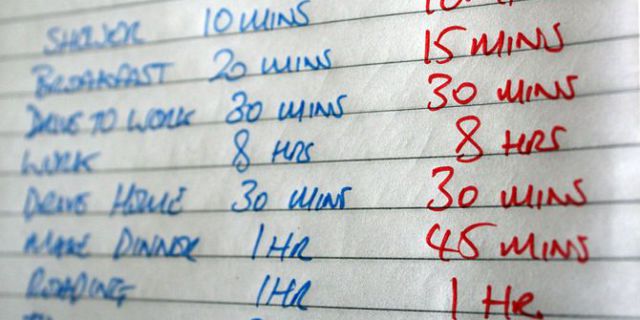 SHOWER 10 MINS
BREAKFAST 20 MINS 15 MINS
DRIVE TO WORK 30 MINS 30 MINS
WORK 8 HRS 8 HRS
DRIVE HOME 30 MINS 30 MINS
MAKE DINNER 1 HR 45 MINS
READING 1 HR 1 HR